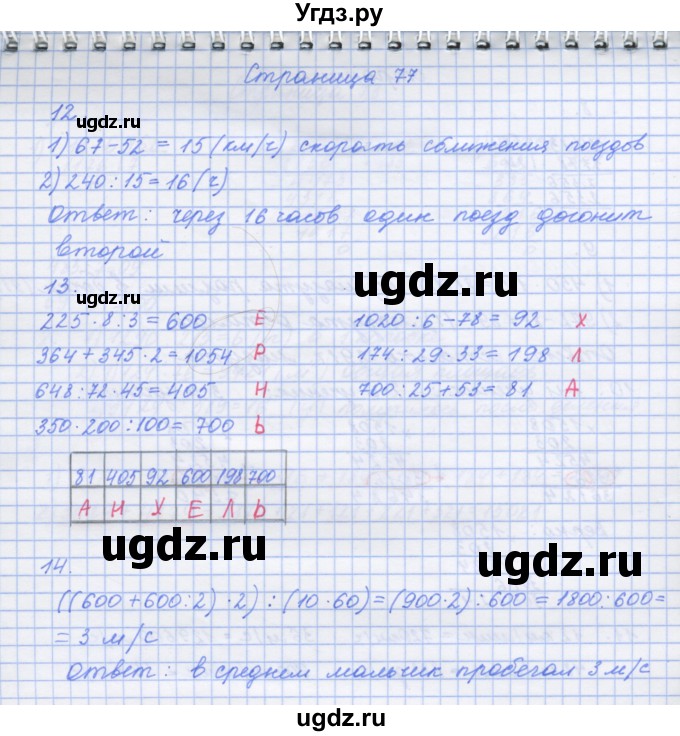 Угдз.ру
Страница 77
12
ugdz.ru
ugdz.ru
1) 67-52 = 15 (км/ч) скорость сближения поездов
2) 240 : 15 = 16 (ч)
Ответ: через 16 часов один поезд догонит
второй
13.
ugdz.ru
ugdz.ru
225 · 8 : 3 = 600 Е 1020 : 6 - 78 = 92 Х
364 + 345 · 2 = 1054 Р 174 : 29 · 33 = 198 Л
648 : 72 · 45 = 405 Н 700 : 25 + 53 = 81 А
350 · 200 : 100 = 700 Ь
81 405 92 600 198 700
А Н Х Е Л Ь
ugdz.ru
ugdz.ru
14.
((600 + 600 : 2) · 2) : (10 · 60) = (900 · 2) : 600 = 1800 : 600 =
= 3 м/с
Ответ: в среднем мальчик пробегал 3 м/с
ugdz.ru
ugdz.ru
ugdz.ru